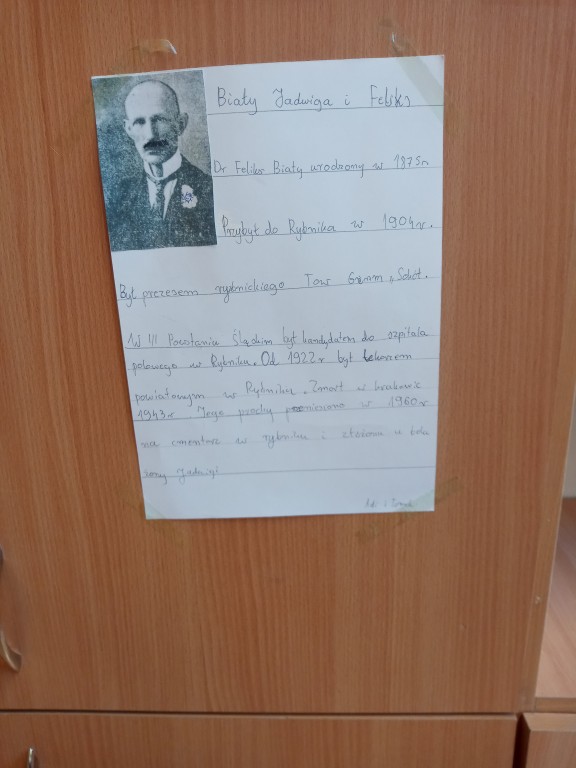 Biały Jadwiga i Feliks
Dr Feliks Biały urodzony w 1875r
Przybył do Rybnika w 1904r.
Był prezesem rybnickiego Tow Gimn „Sokół.
W III Powstaniu Śląskim był kandydatem do szpitala
polowego w Rybniku. Od 1922r był lekarzem
powiatowym w Rybniku. Zmarł w krakowie
1943r Jego prochy w 1960r
na cmentarz w rybniku i złożono u boku
żony Jadwigi